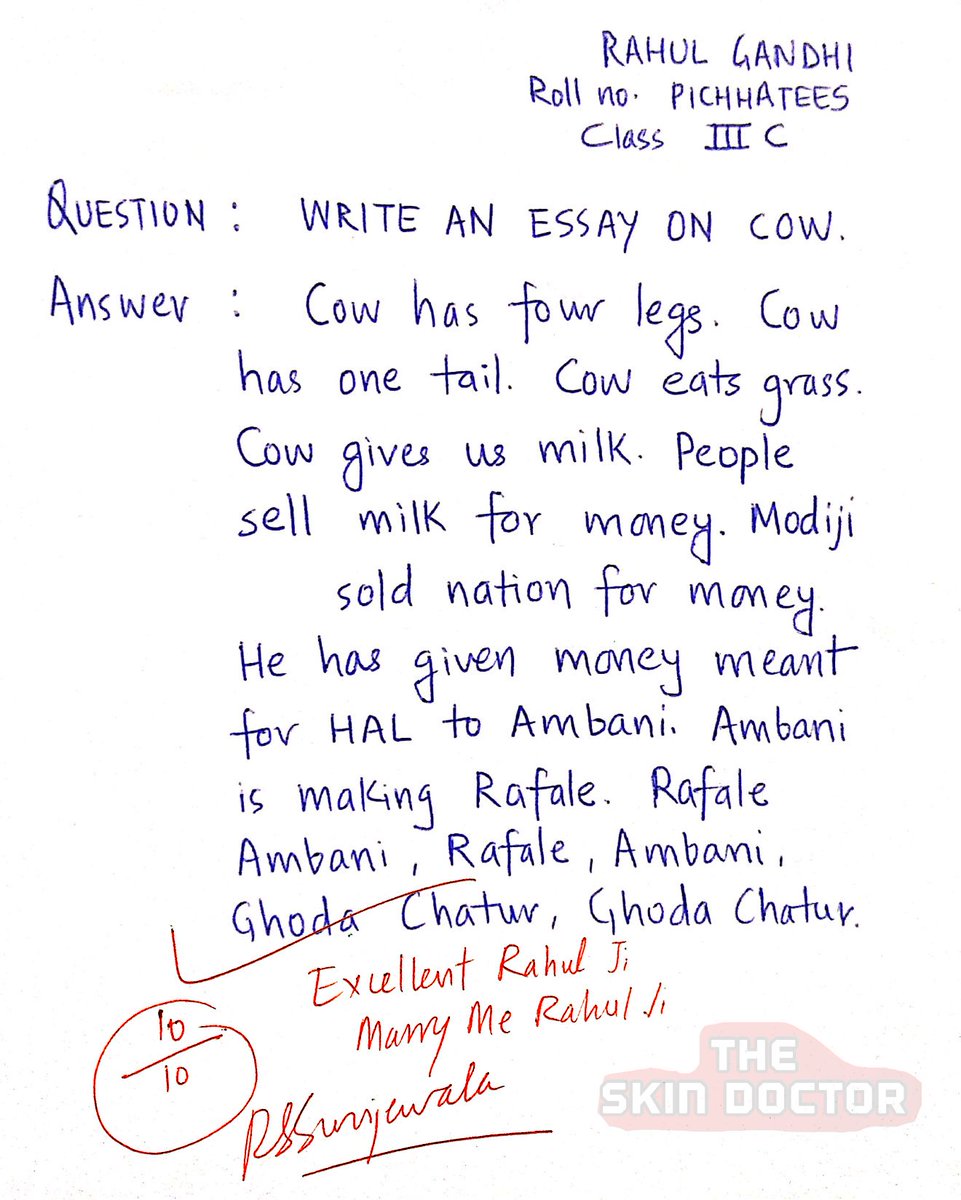 RAHUL GANDHI
Roll no. PICHHATEES
Class III C
QUESTION : WRITE AN ESSAY ON COW.
Answer : Cow has four legs. Cow
has one tail. Cow eats grass.
Cow gives us milk. People
sell milk for money. Modiji
sold nation for money.
He has given money meant
for HAL to Ambani. Ambani
is making Rafale. Rafale
Ambani, Rafale, Ambani,
Ghoda Chatur, Ghoda Chatur.
Excellent Rahul Ji
Marry Me Rahul Ji
10
10
RSSurjewala
THE
SKIN DOCTOR